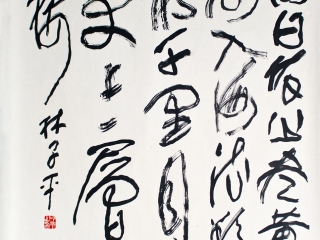 白日依山盡黄
河入海流欲
窮千里目
更上一層
樓
林子平